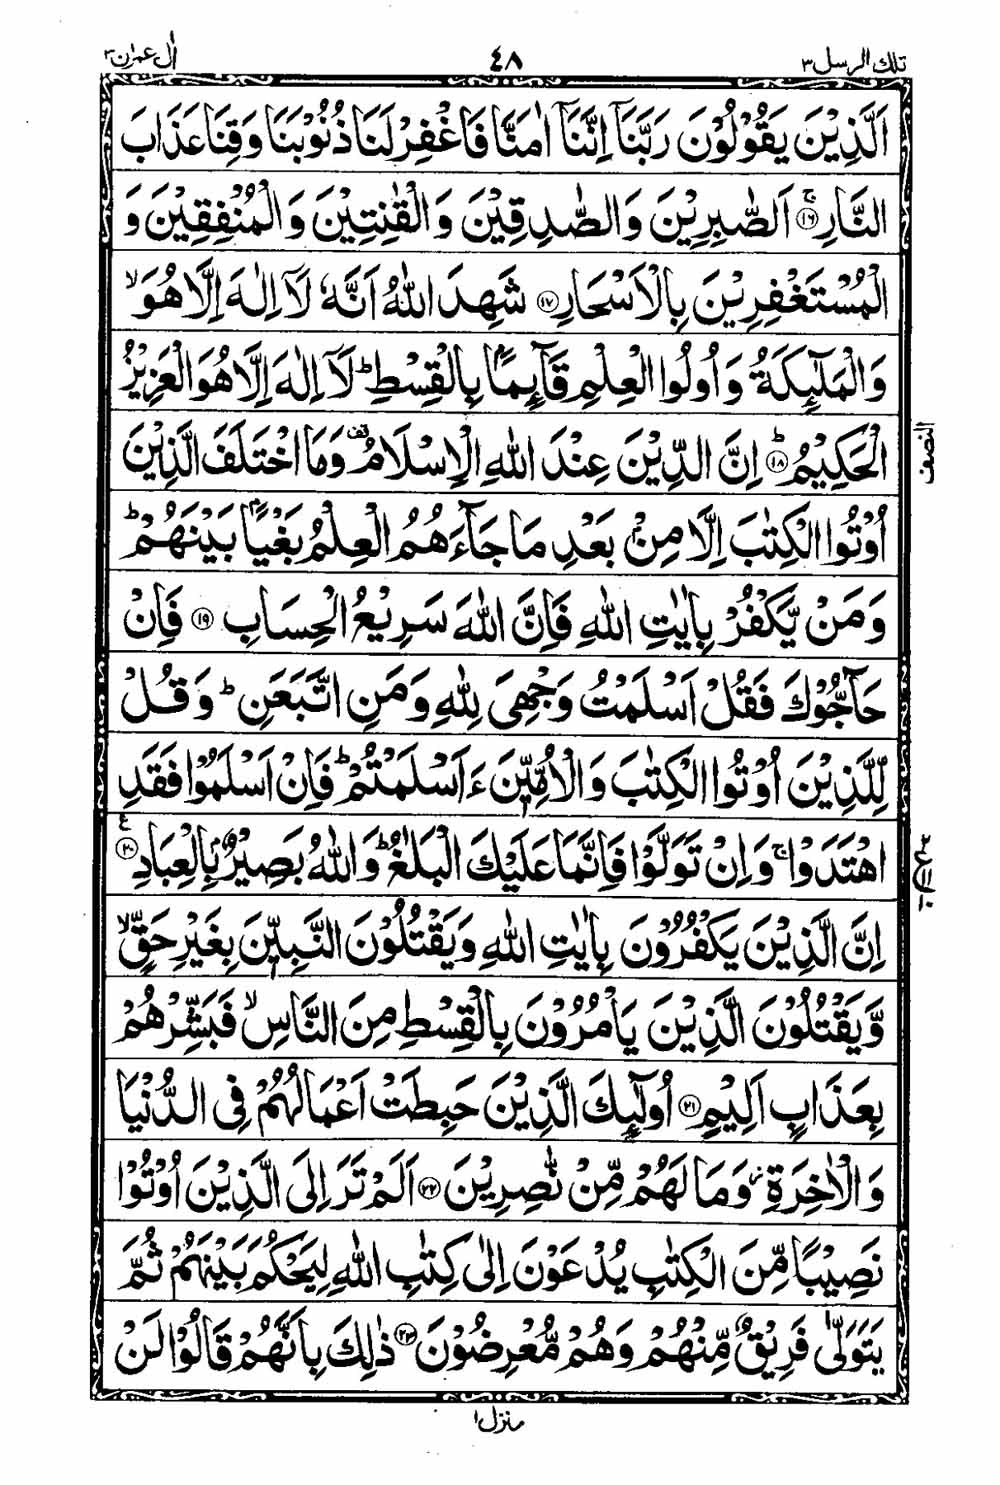 تلك الرسل ٣ ٤٨ اٰل عمرٰن ٣
اَلَّذِيْنَ يَقُوْلُوْنَ رَبَّنَاۤ اِنَّنَاۤ اٰمَنَّا فَاغْفِرْ لَنَا ذُنُوْبَنَا وَقِنَا عَذَابَ
النَّارِۚ‏ ﴿۱۶﴾ اَلصّٰبِرِيْنَ وَالصّٰدِقِيْنَ وَالْقٰنِتِيْنَ وَالْمُنْفِقِيْنَ وَ
الْمُسْتَغْفِرِيْنَ بِالْاَسْحَارِ ﴿۱۷﴾ شَهِدَ اللّٰهُ اَنَّهٗ لَاۤ اِلٰهَ اِلَّا هُوَۙ
وَالْمَلٰٓئِكَةُ وَاُولُوا الْعِلْمِ قَآئِمًاۢ بِالْقِسْطِؕ لَاۤ اِلٰهَ اِلَّا هُوَ الْعَزِيْزُ
الْحَكِيْمُؕ ﴿۱۸﴾ اِنَّ الدِّيْنَ عِنْدَ اللّٰهِ الْاِسْلَامُ قف وَمَا اخْتَلَفَ الَّذِيْنَ
النصف
اُوْتُوا الْكِتٰبَ اِلَّا مِنْۢ بَعْدِ مَا جَآءَهُمُ الْعِلْمُ بَغْيًاۢ بَيْنَهُمْؕ
وَمَنْ يَّكْفُرْ بِاٰيٰتِ اللّٰهِ فَاِنَّ اللّٰهَ سَرِيْعُ الْحِسَابِ ﴿۱۹﴾ فَاِنْ
حَآجُّوْكَ فَقُلْ اَسْلَمْتُ وَجْهِىَ لِلّٰهِ وَمَنِ اتَّبَعَنِؕ وَقُلْ
لِّلَّذِيْنَ اُوْتُوا الْكِتٰبَ وَالْاُمِّيّٖنَ ءَاَسْلَمْتُمْؕ فَاِنْ اَسْلَمُوْا فَقَدِ
اهْتَدَوْاۚ وَاِنْ تَوَلَّوْا فَاِنَّمَا عَلَيْكَ الْبَلٰغُؕ وَاللّٰهُ بَصِيْرٌۢ بِالْعِبَادِ ﴿۲۰﴾ ع
اِنَّ الَّذِيْنَ يَكْفُرُوْنَ بِاٰيٰتِ اللّٰهِ وَيَقْتُلُوْنَ النَّبِيّٖنَ بِغَيْرِ حَقٍّۙ
وَّيَقْتُلُوْنَ الَّذِيْنَ يَاْمُرُوْنَ بِالْقِسْطِ مِنَ النَّاسِۙ فَبَشِّرْهُمْ
بِعَذَابٍ اَلِيْمٍ ﴿۲۱﴾ اُولٰٓئِكَ الَّذِيْنَ حَبِطَتْ اَعْمَالُهُمْ فِى الدُّنْيَا
وَالْاٰخِرَةِؗ وَمَا لَهُمْ مِّنْ نّٰصِرِيْنَ ﴿۲۲﴾ اَلَمْ تَرَ اِلَى الَّذِيْنَ اُوْتُوْا
نَصِيْبًا مِّنَ الْكِتٰبِ يُدْعَوْنَ اِلٰى كِتٰبِ اللّٰهِ لِيَحْكُمَ بَيْنَهُمْ ثُمَّ
يَتَوَلّٰى فَرِيْقٌ مِّنْهُمْ وَهُمْ مُّعْرِضُوْنَ ﴿۲۳﴾ ذٰلِكَ بِاَنَّهُمْ قَالُوْا لَنْ
منزل ١